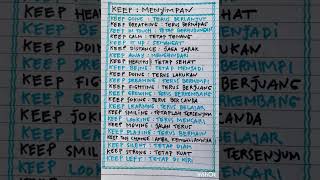 KEEP : MENYIMPAN
KEEP GOING : TERUS BERLANJUT
KEEP BREATHING : TERUS BERNAPAS
KEEP IN TOUCH : TETAP BERHUBUNGAN
KEEP CALM : TETAP TENANG
KEEP IT UP : SEMANGAT
KEEP DISTANCE : JAGA JARAK
KEEP AWAY : MENGHINDARI
KEEP HEALTHY : TETAP SEHAT
KEEP BEING : TETAP MENJADI
KEEP DOING : TERUS LAKUKAN
KEEP DREAMING : TERUS BERMIMPI
KEEP FIGHTING : TERUS BERJUANG
KEEP GROWING : TERUS BERKEMBANG
KEEP JOKING : TERUS BERCANDA
KEEP LEARNING : TERUS BELAJAR
KEEP SMILING : TETAPLAH TERSENYUM
KEEP LOOKING : TERUS MENCARI
KEEP MOVING : JALAN TERUS
KEEP PLAYING : TERUS BERMAIN
KEEP THE CHANGE : AMBIL KEMBALIANNYA
KEEP SILENT : TETAP DIAM
KEEP STRONG : TETAP KUAT
KEEP LEFT : TETAP DI KIRI